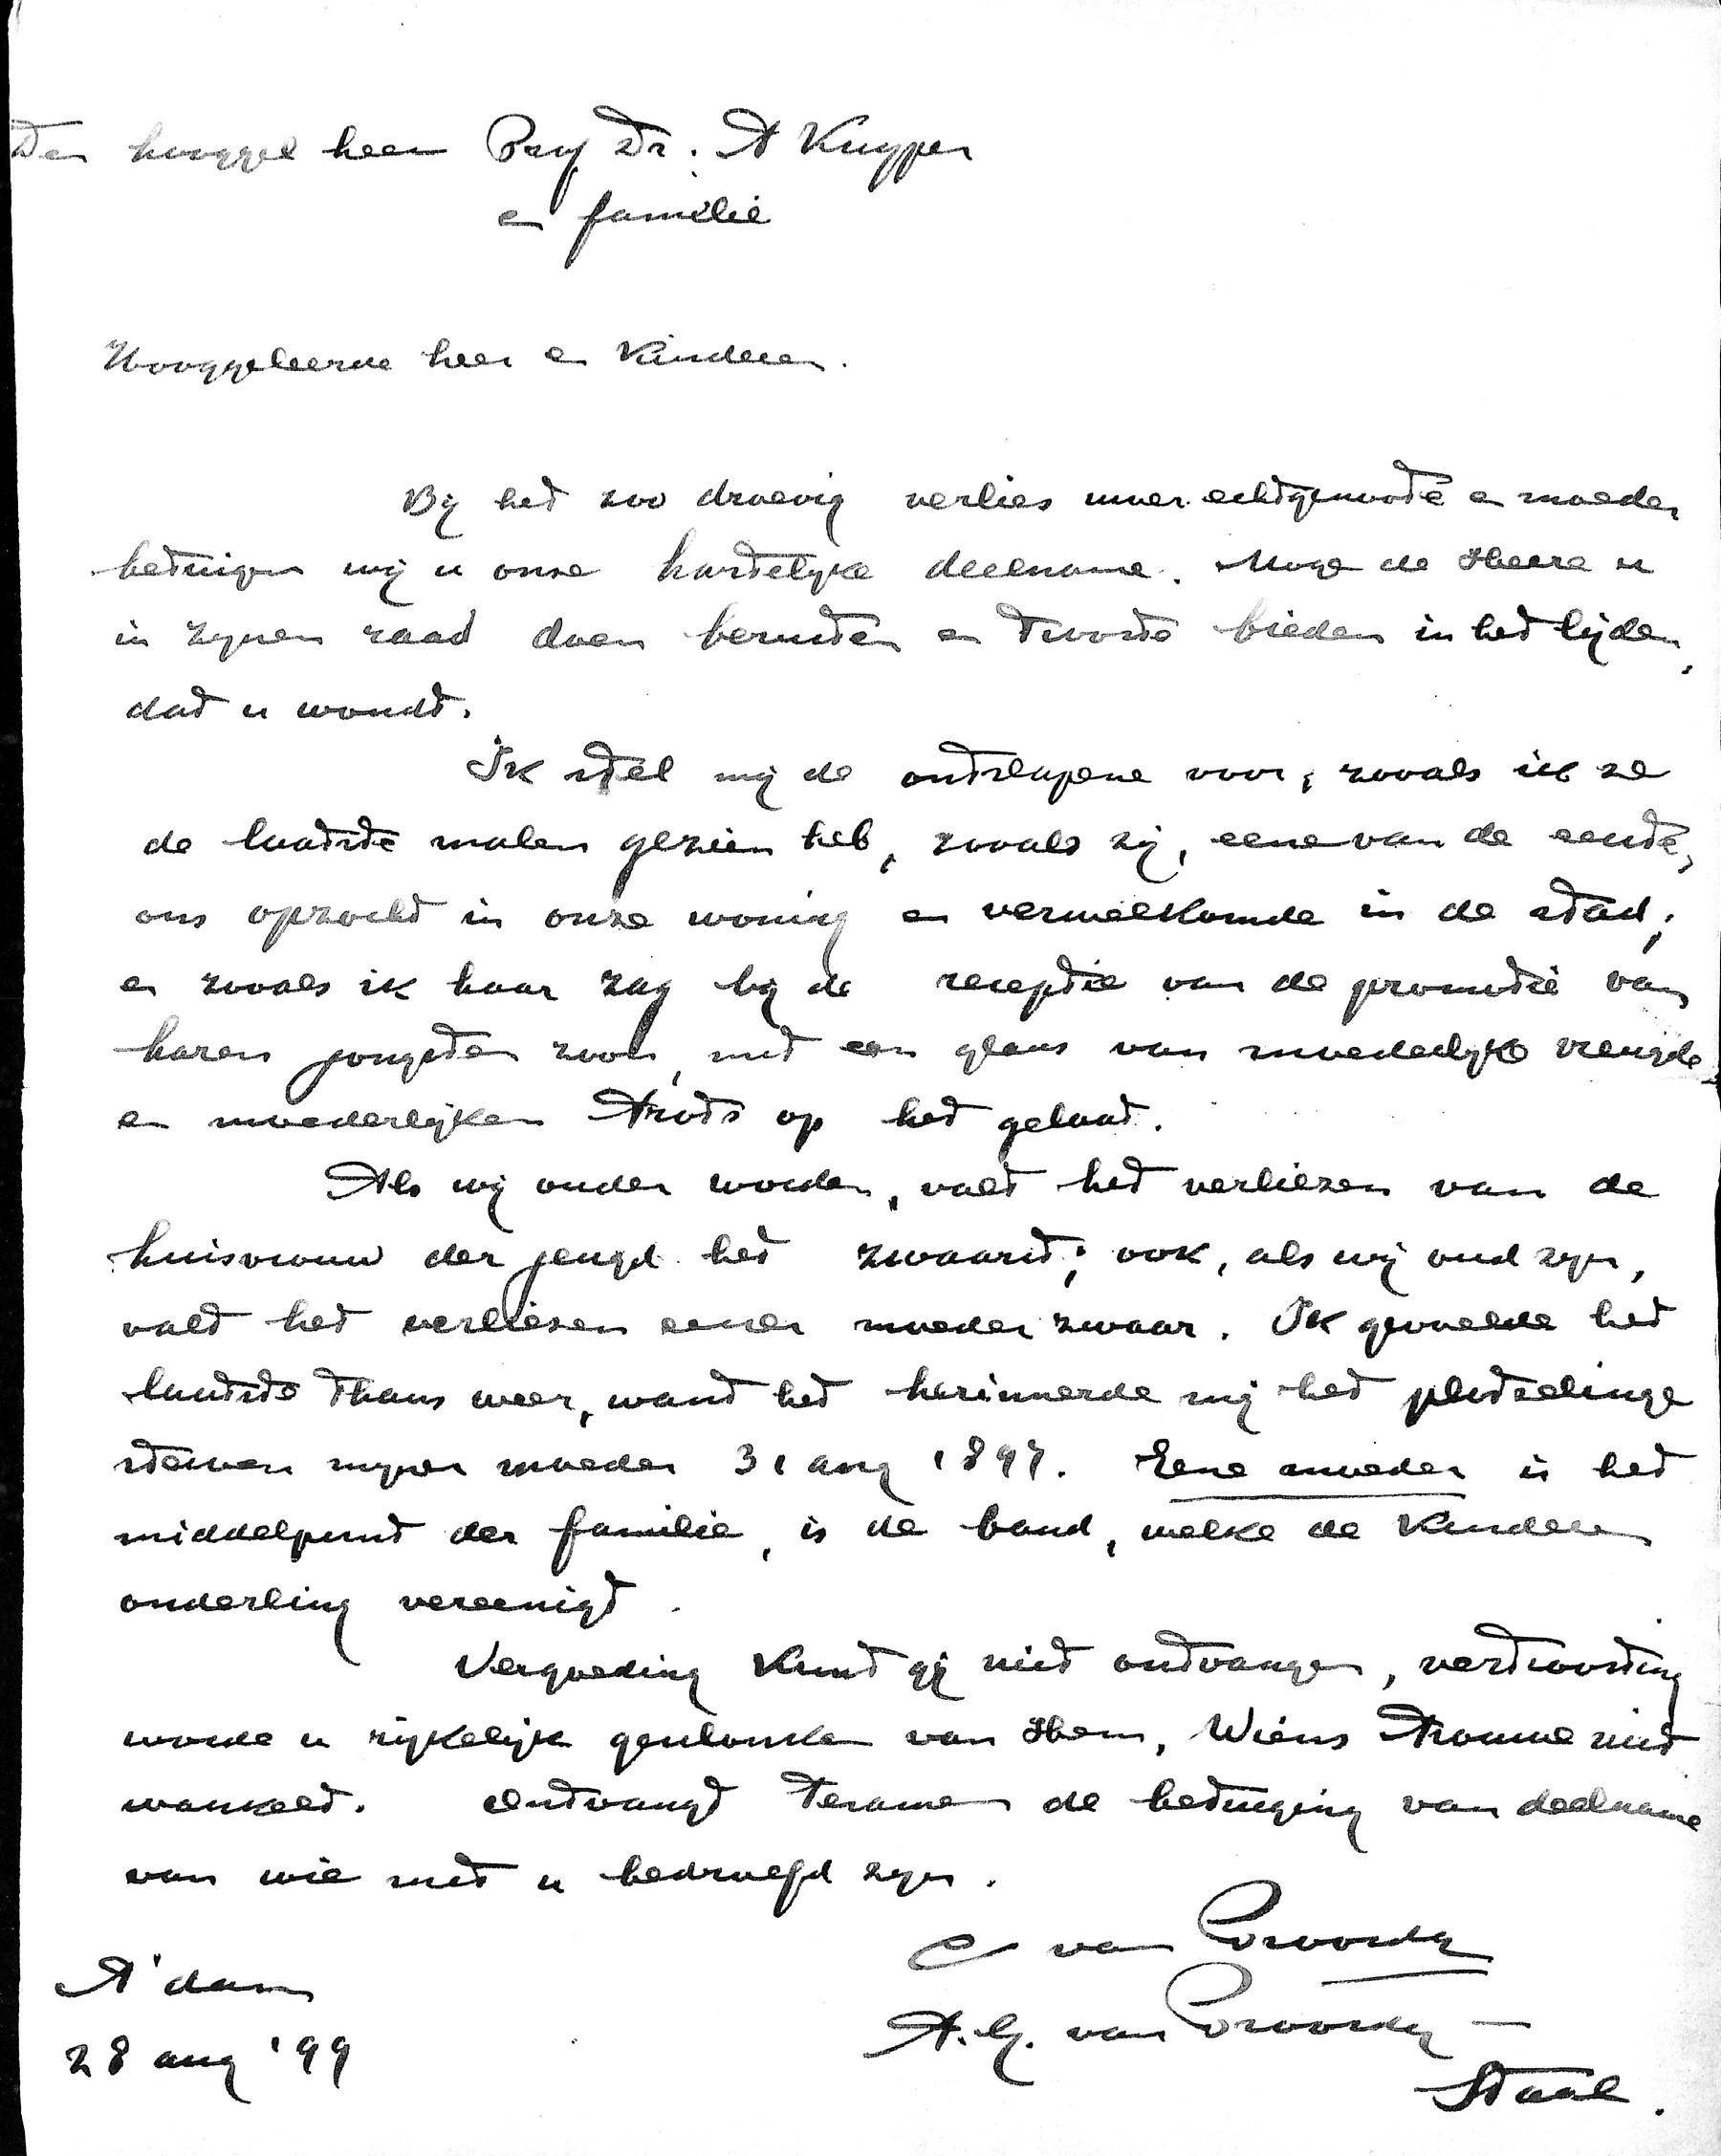 Den hooggel heer Prof Dr. A Kuyper
en familie
Hooggeleerde heer en Kinderen.
By het zoo droevig verlies uwer echtgenoote en moeder
betuigen wij u onze hartelyke deelname. Moge de Heere u
in zynen raad doen berusten en troost bieden in het lijden,
dat u wondt.
Ik stel mij de ontslapene voor, zooals ik ze
de laatste malen gezien heb, zooals zij, eene van de eerste,
ons opzocht in onze woning en verwelkomde in de stad;
en zooals ik haar zag bij de receptie van de promotie van
haren jongsten zoon, met een glans van moederlyke vreugde
en moederlijken trots op het gelaat.
Als wij ouder worden, valt het verliezen van de
huisvrouw der jeugd het zwaarst; ook, als wij oud zyn,
valt het verliezen eener moeder zwaar. Ik gevoelde het
laatste thans weer, want het herinnerde mij het plotselinge
sterven myner moeder 31 aug 1897. Eene moeder is het
middelpunt der familie, is de band, welke de Kinderen
onderling vereenigt.
Vergoeding Kunt gij niet ontvangen, vertroosting
worde u rijkelijk geschonken van Hem, Wiens trouwe niet
wankelt. Ontvangt tesamen de betuiging van deelname
van wie met u bedroefd zyn.
C van Proosdy
A. G. van Proosdy —
Staal.
A'dam
28 aug '99